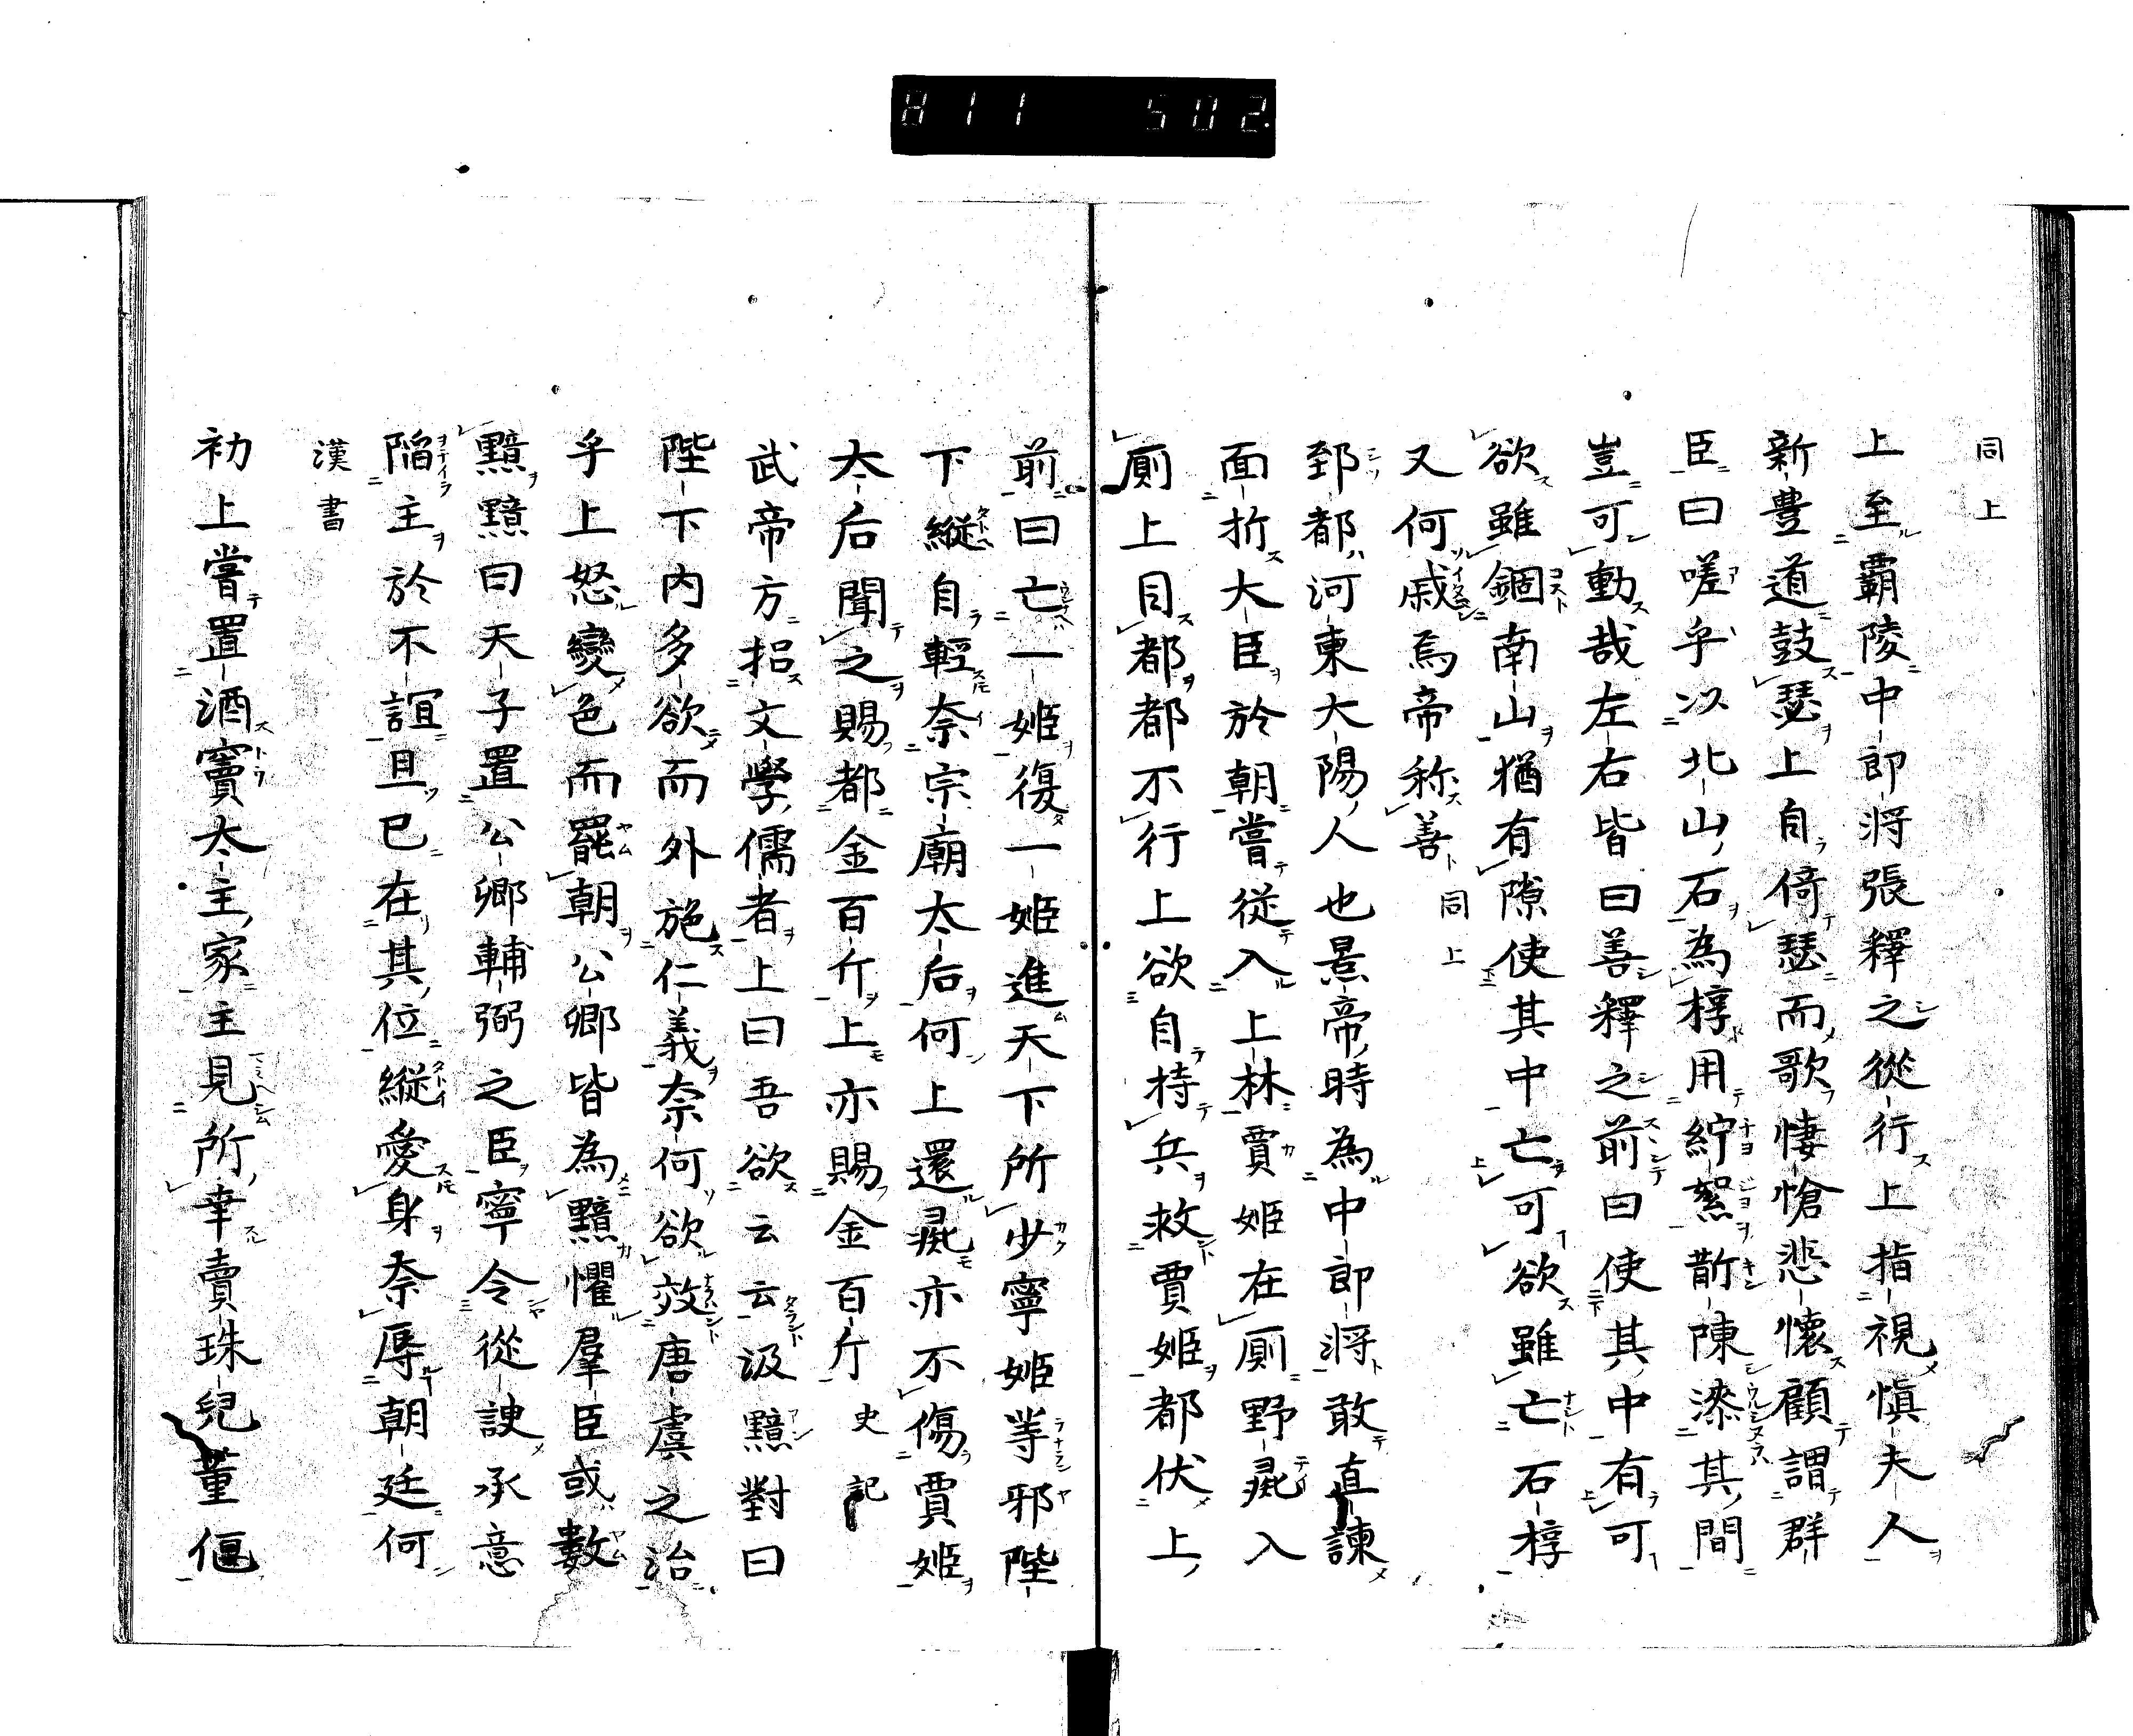 811 502.
同上
上至覇陵中郎将張釋之從行上指視慎夫人
新豊道鼓瑟上自倚瑟而歌悽愴悲懐顧謂群
臣曰嗟乎以北山石為椁用紵絮斮陳漆其間
豈可動哉左右皆曰善釋之前曰使其中有可
欲雖錮南山猶有隙使其中亡可欲雖亡石椁
又何戚焉帝称善 同上
郅都河東大陽人也景帝時為中郎将敢直諫
面折大臣於朝嘗從入上林賈姫在厠野彘入
厠上目都都不行上欲自持兵救賈姫都伏上
前曰亡一姫復一姫進天下所少寧姫等邪陛
下縦自輕奈宗廟太后何上還彘亦不傷賈姫
太后聞之賜都金百斤上亦賜金百斤 史記
武帝方招文學儒者上曰吾欲云云汲黯對曰
陛下内多欲而外施仁義奈何欲效唐虞之治
乎上怒變色而罷朝公卿皆為黯懼羣臣或數
黯黯曰天子置公卿輔弼之臣寧令從諛承意
陥主於不誼且已在其位縦愛身奈辱朝廷何
漢書
初上嘗置酒竇太主家主見所幸賣珠兒董偃